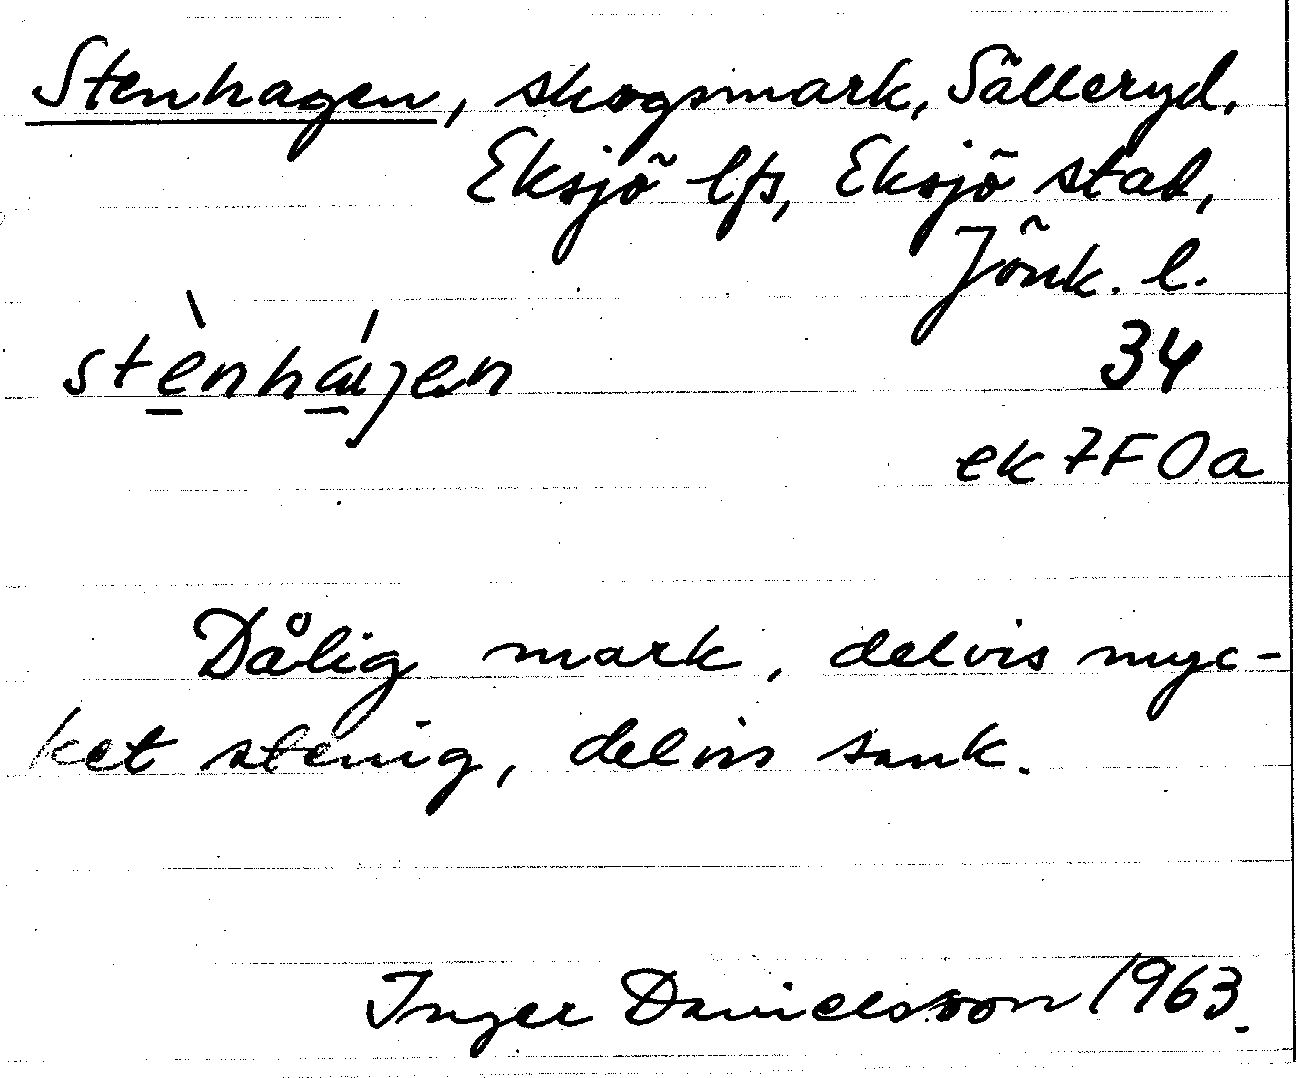 Stenhagen, skogsmark, Sälleryd,
Eksjö lfs, Eksjö stad,
Jönk. l.
stènháɡen
34
ek 7F0a
Dålig mark, delvis myc-
ket stenig, delvis sank.
Inger Danielsson 1963.